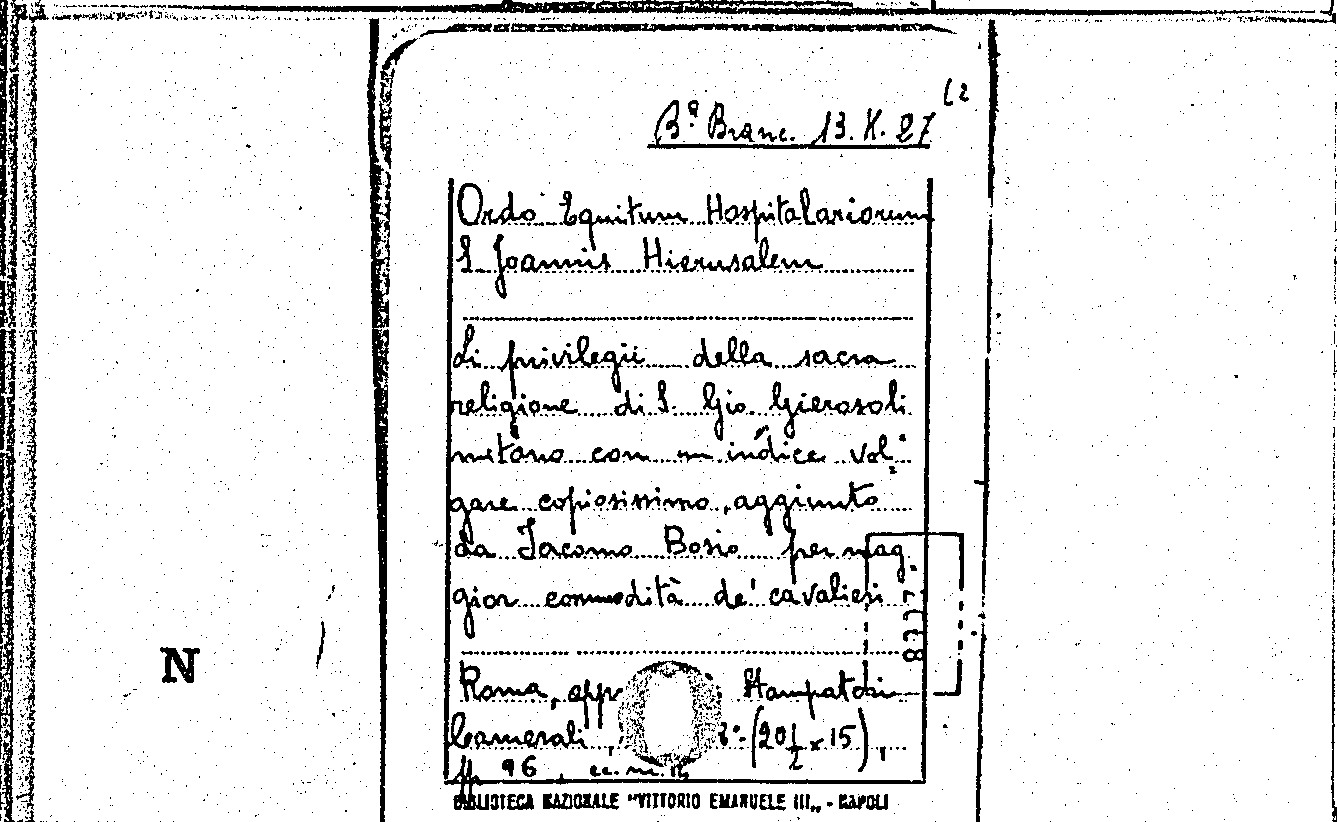 (2
Bª Branc. 13. K. 27
Ordo Equitum Hospitalariorum
S. Joannis Hierusalem
Li privilegii della sacra
religione di S. Gio. Gierosoli
mitano con un indice vol
gare copiosissimo, aggiunto
da Jacomo Bosio per mag
gior commodità de' cavalieri
8777.
Roma, app Stampatori
Camerali, 8º (20½ x 15),
pp 96, cc. n. n.
N
BIBLIOTECA NAZIONALE "VITTORIO EMANUELE III„ - NAPOLI